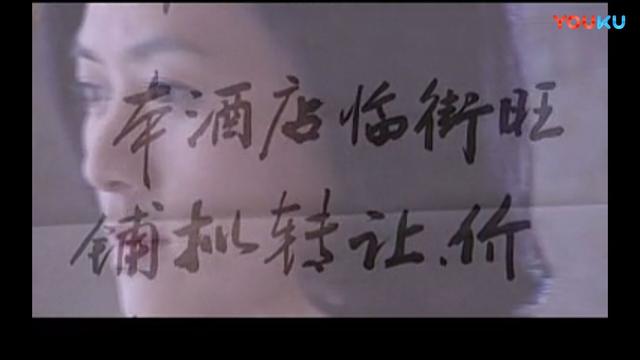 YOUKU
本酒店临街旺
铺拟转让、价